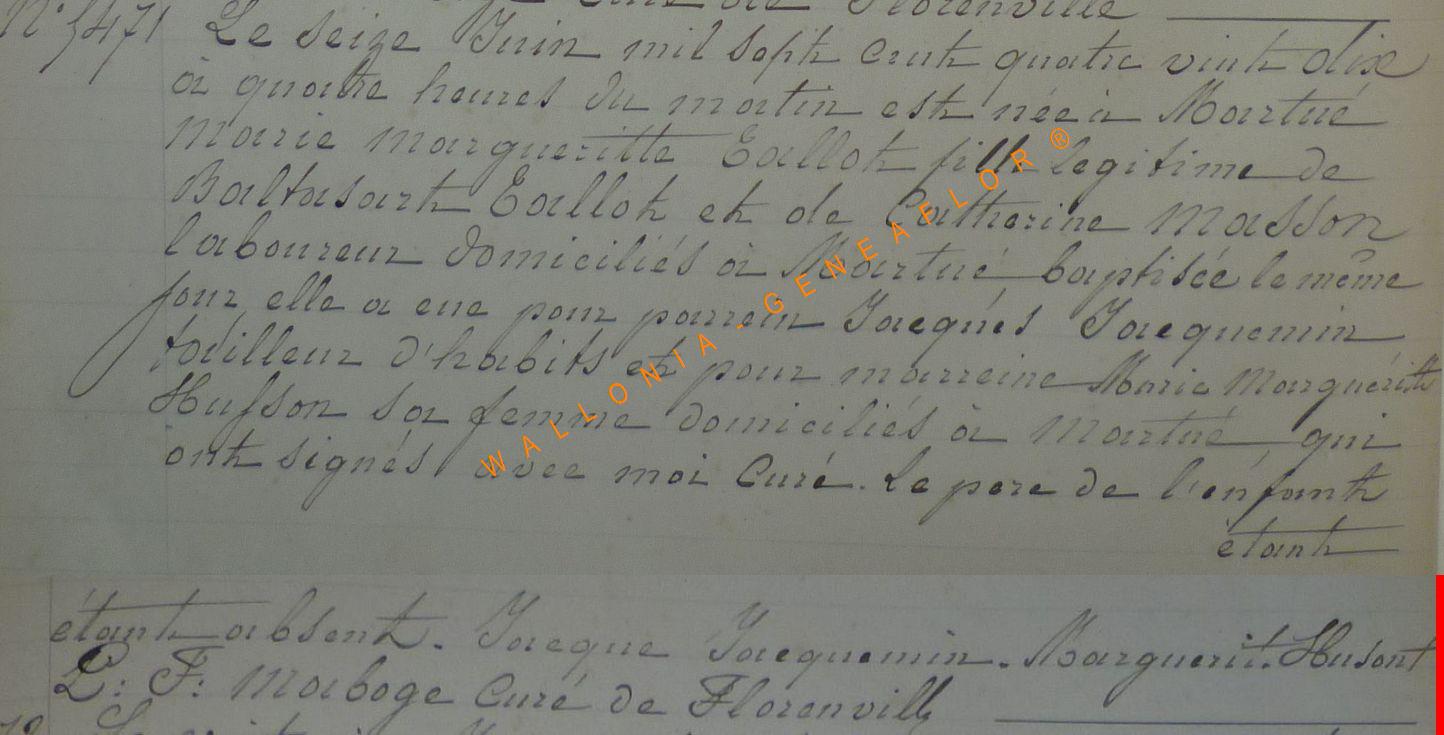 curé de Florenville
N° 5471 Le seize Juin mil sept cent quatre vint dix
à quatre heures du matin est née à Martué
Marie Margueritte Eallot fille legitime de
Baltasart Eallot et de Catherine Masson
laboureur domiciliés à Martué, baptisée le même
jour, elle a eue pour parrein Jacqués Jacquemin
tailleur d'habits et pour marreine Marie Marguéritte
Husson sa femme domiciliés à Martué, qui
ont signés avec moi Curé. Le pere de l'enfant
étant
étant absent. Jacque Jacquemin. Marguerit. Husont
L: F: Maboge Curé de Florenville
WALLONIA - GENEAFLOR ®